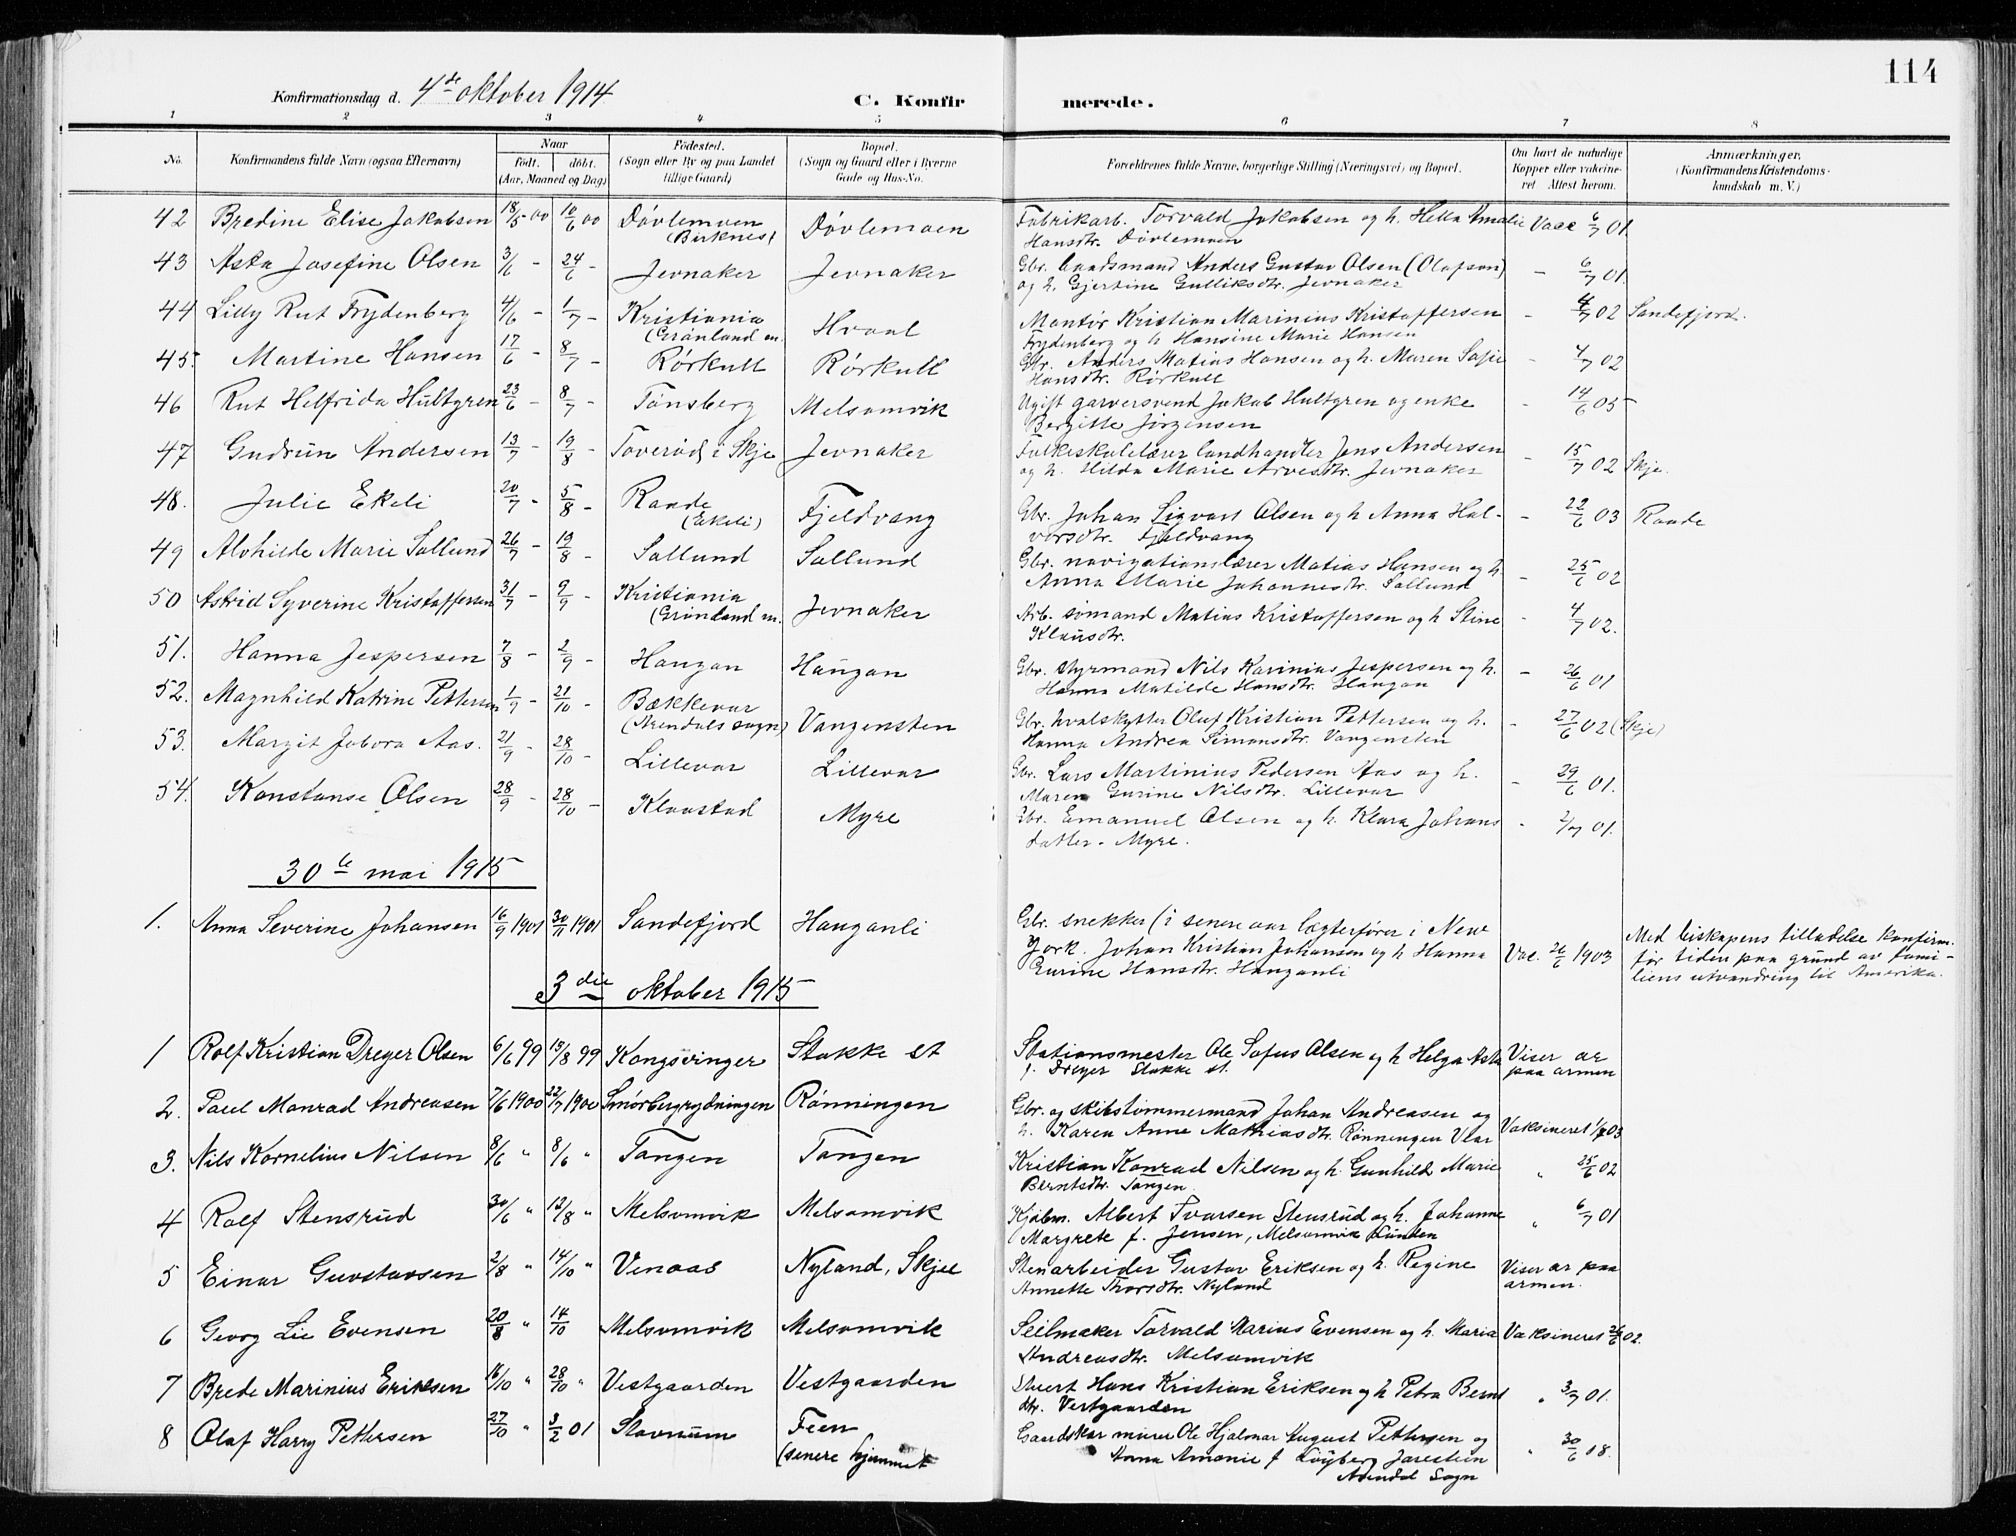 114
Konfirmationsdag d. 4de oktober 1914
C. Konfirmerede.
1 2 3 4 5 6 7 8
No. | Konfirmandens fulde Navn (ogsaa Efternavn) | Naar født. døbt. (Aar, Maaned og Dag) | Fødested. (Sogn eller By og paa Landet tillige Gaard) | Bopæl. (Sogn og Gaard eller i Byerne Gade og Hus-No. | Forældrenes fulde Navne, borgerlige Stilling (Næringsvei) og Bopæl. | Om havt de naturlige Kopper eller vakcineret. Attest herom. | Anmærkninger. (Konfirmandens Kristendomskundskab m. V.)
42 Bredine Elise Jakobsen 18/5 00 10/6 00 Døvlemoen (Birknes) Døvlemoen Fabrikarb. Torvald Jakobsen og h. Hella Amalie Vacc 6/7 01.
Hansdtr. Døvlemoen
43 Asta Josefine Olsen 3/6 - 24/6 - Jevnaker Jevnaker Gbr. baadsmand Anders Gustav Olsen (Olafsen) - 6/7 01.
og h. Gjertine Gulliksdtr. Jevnaker
44 Lilly Rut Frydenberg 4/6 - 1/7 - Kristiania (Grønland m. Hvaal Montør Kristian Marinius Kristoffersen - 4/7 02 Sandefjord.
Frydenberg og h Hansine Marie Hansen
45. Martine Hansen 17/6 - 8/7 - Rørkull Rørkull Gbr. Anders Matias Hansen og h. Maren Sofie - 4/7 02
Hansdtr. Rørkull
46 Rut Helfrida Hultgren 23/6 - 8/7 - Tønsberg Melsomvik Ugift garversvend Jakob Hultgren og enke - 14/6 05
Bergitte Jørgensen
47 Gudrun Andersen 13/7 - 19/8 - Toverød i Skje Jevnaker Folkeskolelærer landhandler Jens Andersen - 15/7 02 Skje.
og h. Hilda Marie Arvesdtr. Jevnaker
48. Julie Ekeli 20/7 - 5/8 - Raade (Ekeli) Fjeldvang Gbr. Johan Sigvart Olsen og h Anna Hal- - 22/6 03 Raade
vorsdtr. Fjeldvang
49 Alvhilde Marie Sollund 26/7 - 19/8 - Sollund Sollund Gbr. navigationslærer Matias Hansen og h. - 25/6 02
Anna Marie Johannesdtr. Sollund
50 Astrid Syverine Kristoffersen 31/7 - 9/9 - Kristiania (Grønland m. Jevnaker Arb. sømand Matias Kristoffersen og h Stine - 4/7 02.
Klausdtr.
51. Hanna Jespersen 7/8 - 2/9 - Haugan Haugan Gbr. styrmand Nils Karinius Jespersen og h. - 26/6 01
Hanna Matilde Hansdtr. Haugan
52. Magnhild Katrine Pettersen 1/9 - 21/10 - Bækkevar (Arendals sogn) Vangensten Gbr. hvalskytter Oluf Kristian Pettersen og h. - 27/6 02 (Skje)
Hanna Andrea Simonsdtr. Vangensten
53. Margit Jobora Aas. 21/9 - 28/10 - Lillevar Lillevar Gbr. Lars Martinius Pedersen Aas og h. - 29/6 01.
Maren Gurine Nilsdtr. Lillevar
54. Konstanse Olsen 28/9 - 28/10 - Klaastad Myre Gbr. Emanuel Olsen og h. Klara Johans - 2/7 01.
datter. Myre.
30te mai 1915
1. Anna Severine Johansen 16/9 1901 30/11 1901 Sandefjord Hauganli Gbr. snekker (i senere aar lægterfører i New
York. Johan Kristian Johansen og h Hanna Vac. 26/6 1903
Gurine Hansdtr. Hauganli
Med biskopens tilladelse konfirm.
før tiden paa grund av fami-
liens utvandring til Amerika.
3die oktober 1915
1 Rolf Kristian Dreyer Olsen 6/6 99 13/8 99 Kongsvinger Stokke st Stationsmester Ole Sofus Olsen og h Helga Asta Viser ar
f. Dreyer Stokke st. paa armen
2. Paul Monrad Andreasen 7/6 1900 22/7 1900 Smørbergrydningen Rønningen Gbr. og skibstømmermand Johan Andreasen og
h. Karen Anne Mathiasdtr. Rønningen Vear Vaksineret 1/7 03
3. Nils Kornelius Nilsen 8/6 " 8/6 " Tangen Tangen Kristian Konrad Nilsen og h. Gunhild Marie " 25/6 02
Berntsdtr. Tangen.
4 Rolf Stensrud 30/6 " 12/8 " Melsomvik Melsomvik Kjøbm. Albert Ivarsen Stensrud og h. Johanne " 6/7 01
Margrete f. Jensen, Melsomvik Lunden
5 Einar Gustavsen 2/8 " 14/10 " Venaas Nyland, Skjee Stenarbeider Gustav Eriksen og h. Regine Viser ar paa
Annette Thorsdtr. Nyland armen.
6 Georg Lie Evensen 20/8 " 14/10 Melsomvik Melsomvik Seilmaker Torvald Marius Evensen og h. Maria Vaksineret 26/6 02.
Andreasdtr. Melsomvik
7 Brede Marinius Eriksen 16/10 " 28/10 " Vestgaarden Vestgaarden Stuert Hans Kristian Eriksen og h Petra Bernt " 3/7 01.
dtr. Vestgaarden
8 Olaf Harry Pettersen 27/10 " 3/2 01 Stavnum Feen Gaardskar murer Ole Hjalmar August Pettersen og " 30/6 08.
(senere hjemmet Anna Amanie f Løyberg Jarestein
Arendal Sogn